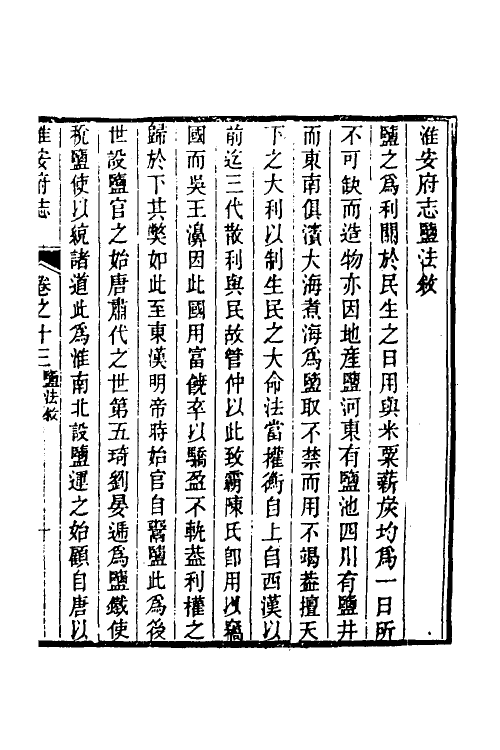 淮安府志鹽法敘
鹽之爲利關於民生之日用與米粟薪炭均爲一日所
不可缺而造物亦因地產鹽河東有鹽池四川有鹽井
而東南俱濱大海煮海爲鹽取不禁而用不竭葢擅天
下之大利以制生民之大命法當權衡自上自西漢以
前迄三代散利與民故管仲以此致霸陳氏卽用以竊
國而吳王濞因此國用富饒卒以驕盈不軌葢利權之
歸於下其獘如此至東漢明帝時始官自鬻鹽此爲後
世設鹽官之始唐肅代之世第五琦劉晏遞爲鹽鐵使
稅鹽使以統諸道此爲淮南北設鹽運之始顧自唐以
淮安府志
卷之十三
鹽法敘
十